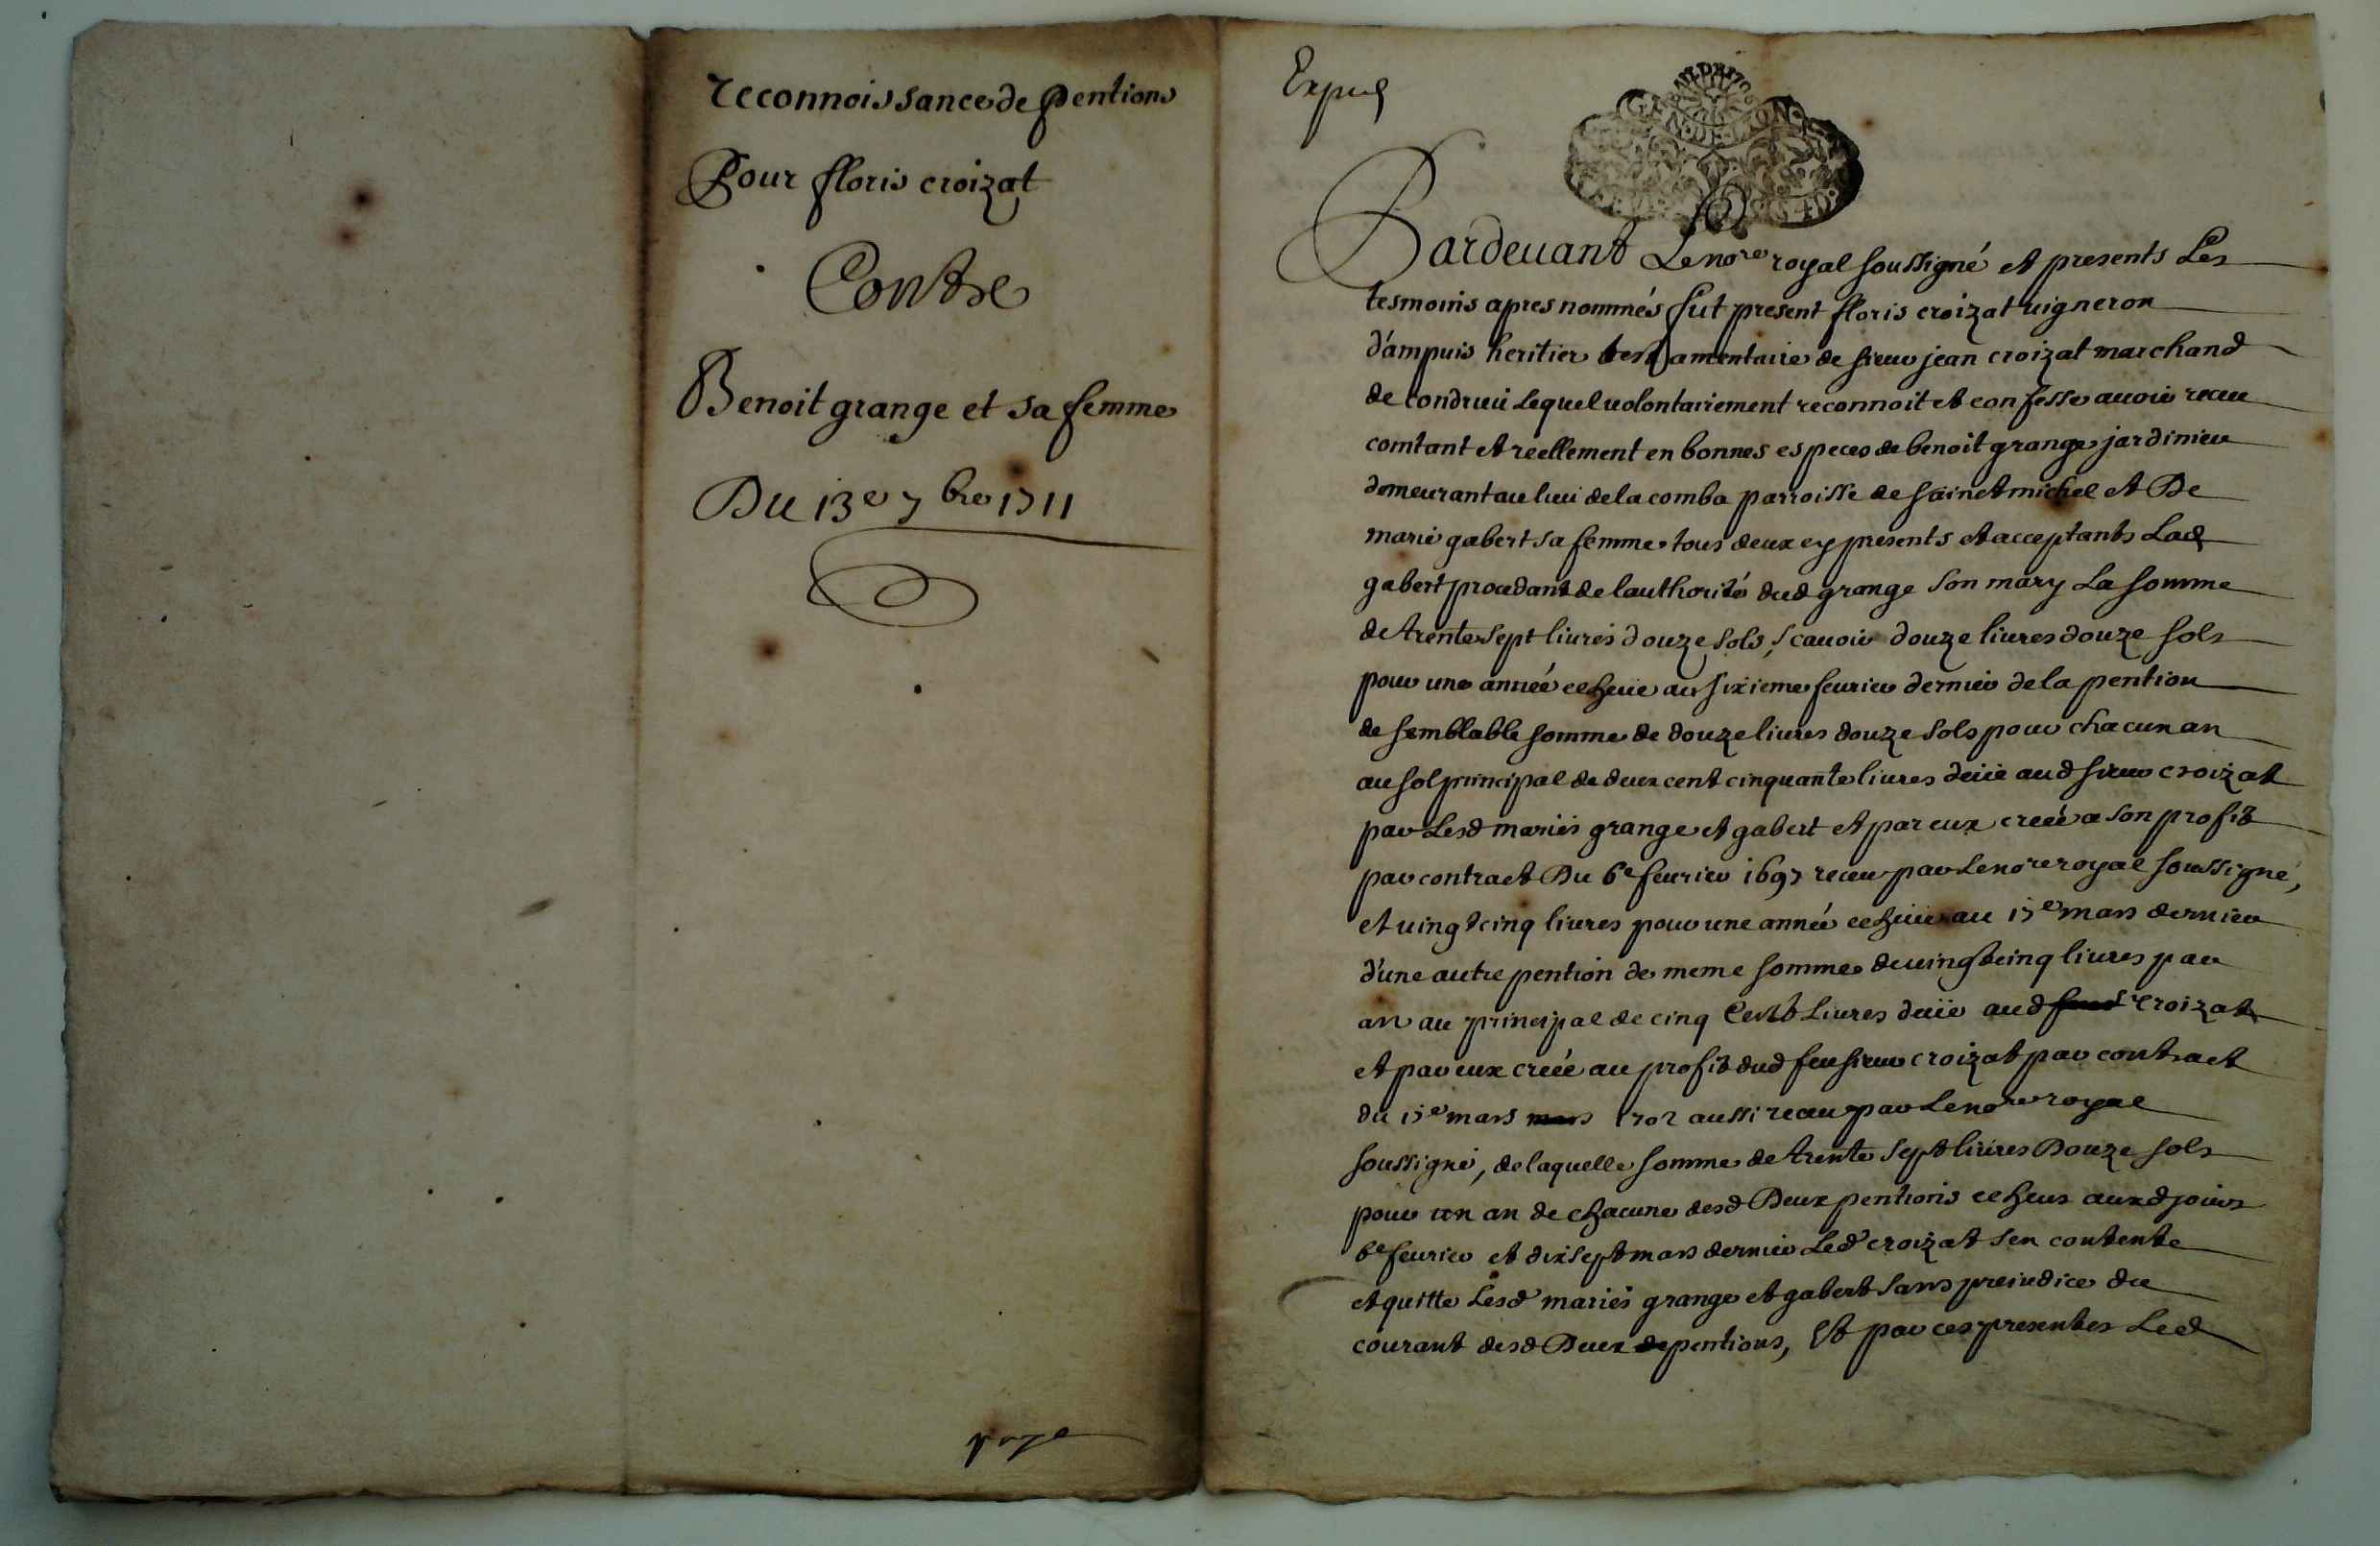 reconnoissance de pentions
Pour floris croizat
Contre
Benoit grange et sa femme
Du 13e 7bre 1711
paye
Exped
Pardeuant Le nore royal soussigné et presents Les
tesmoins apres nommés fut present floris croizat uigneron
d'ampuis heritier testamentaire de sieur jean croizat marchand
de Condrieu Lequel uolontairement reconnoit et confesse auoir receu
comtant et reellement en bonnes especes de benoit grange jardinier
demeurant au lieu de la comba parroisse de sainct michel et De
marie gabert sa femme tous deux cy presents et acceptants Lad
gabert procedant de lauthorité dud grange son mary La somme
de trente sept liures douze sols, scauoir douze liures douze sols
pour une année echeue au sixieme feurier dernier de la pention
de semblable somme de douze liures douze sols pour chacun an
au sol principal de deux cent cinquante liures deüe aud sieur croizat
par Lesd mariés grange et gabert et par eux creée a son profit
par contract Du 6e feurier 1697 receu par Le nore royal soussigné,
et uingt cinq liures pour une année echeüe au 17e mars dernier
d'une autre pention de meme somme de uingt cinq liures par
an au principal de cinq Cent Liures deüe aud sr croizat
et par eux creée au profit dud feu sieur croizat par contract
du 17e mars 1702 aussi receu par Le nore royal
soussigné, de laquelle somme de trente sept liures Douze sols
pour un an de chacune desd Deux pentions echeus auxd jours
6e feurier et dix sept mars dernier Led croizat s'en contente
et quitte Lesd mariés grange et gabert sans preiudice du
courant desd Deux pentions, Et par ces presentes Led